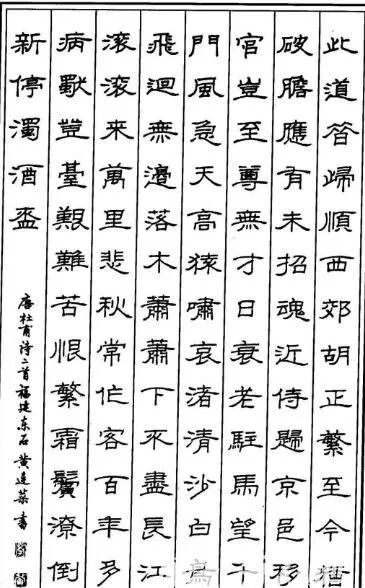 此道昔歸順西郊胡正繁至今
破膽應有未招魂近侍歸京邑移
官豈至尊無才日衰老駐馬望千
門風急天高猿嘯哀渚清沙白鳥
飛迴無邊落木蕭蕭下不盡長江
滾滾來萬里悲秋常作客百年多
病獨登臺艱難苦恨繁霜鬢潦倒
新停濁酒盃
唐杜甫诗二首福建东石黄書